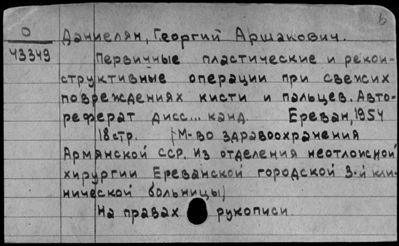 Б
О
43349
Даниелян, Георгий Аршакович.
Первичные пластические и рекон-
структивные операции при свежих
повреждениях кисти и пальцев. Авто-
реферат дисс... канд. Ереван, 1954
18 стр. (М-во здравоохранения
Армянской ССР. Из отделения неотложной
хирургии Ереванской городской 3-й кли-
нической больницы)
На правах рукописи.